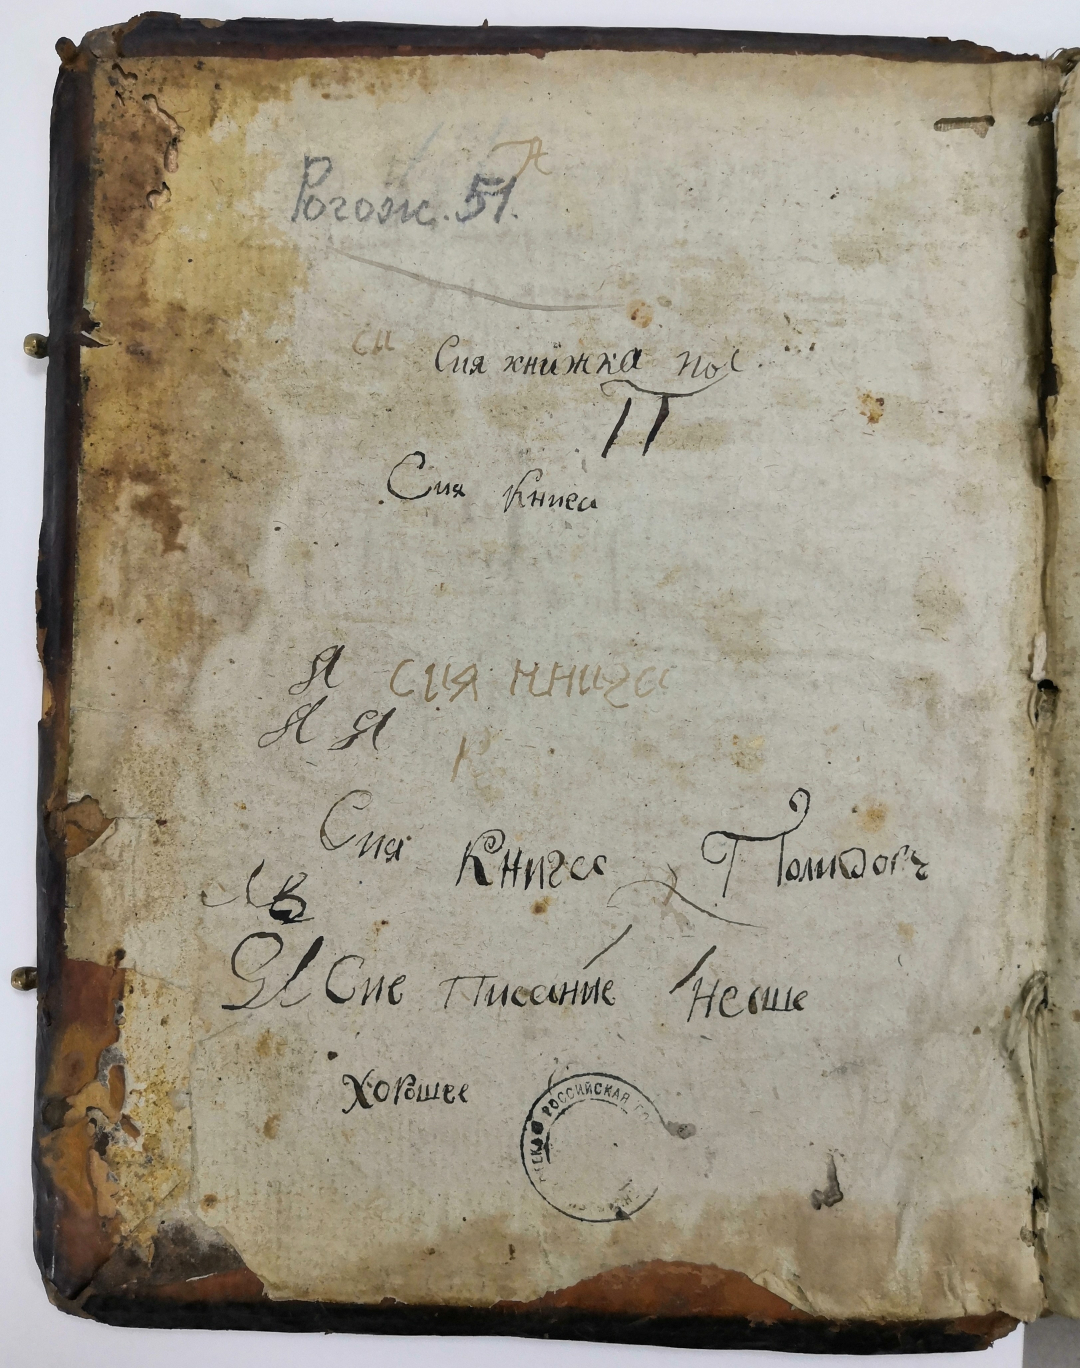 Рогож. 51.
си Сия книжка пос
П
Сия Книга
Я Сия книга
Я Я
Сия Книга Полидоръ
Я Сие Писание Неаше
хорошее
РОССИЙСКАЯ ГО